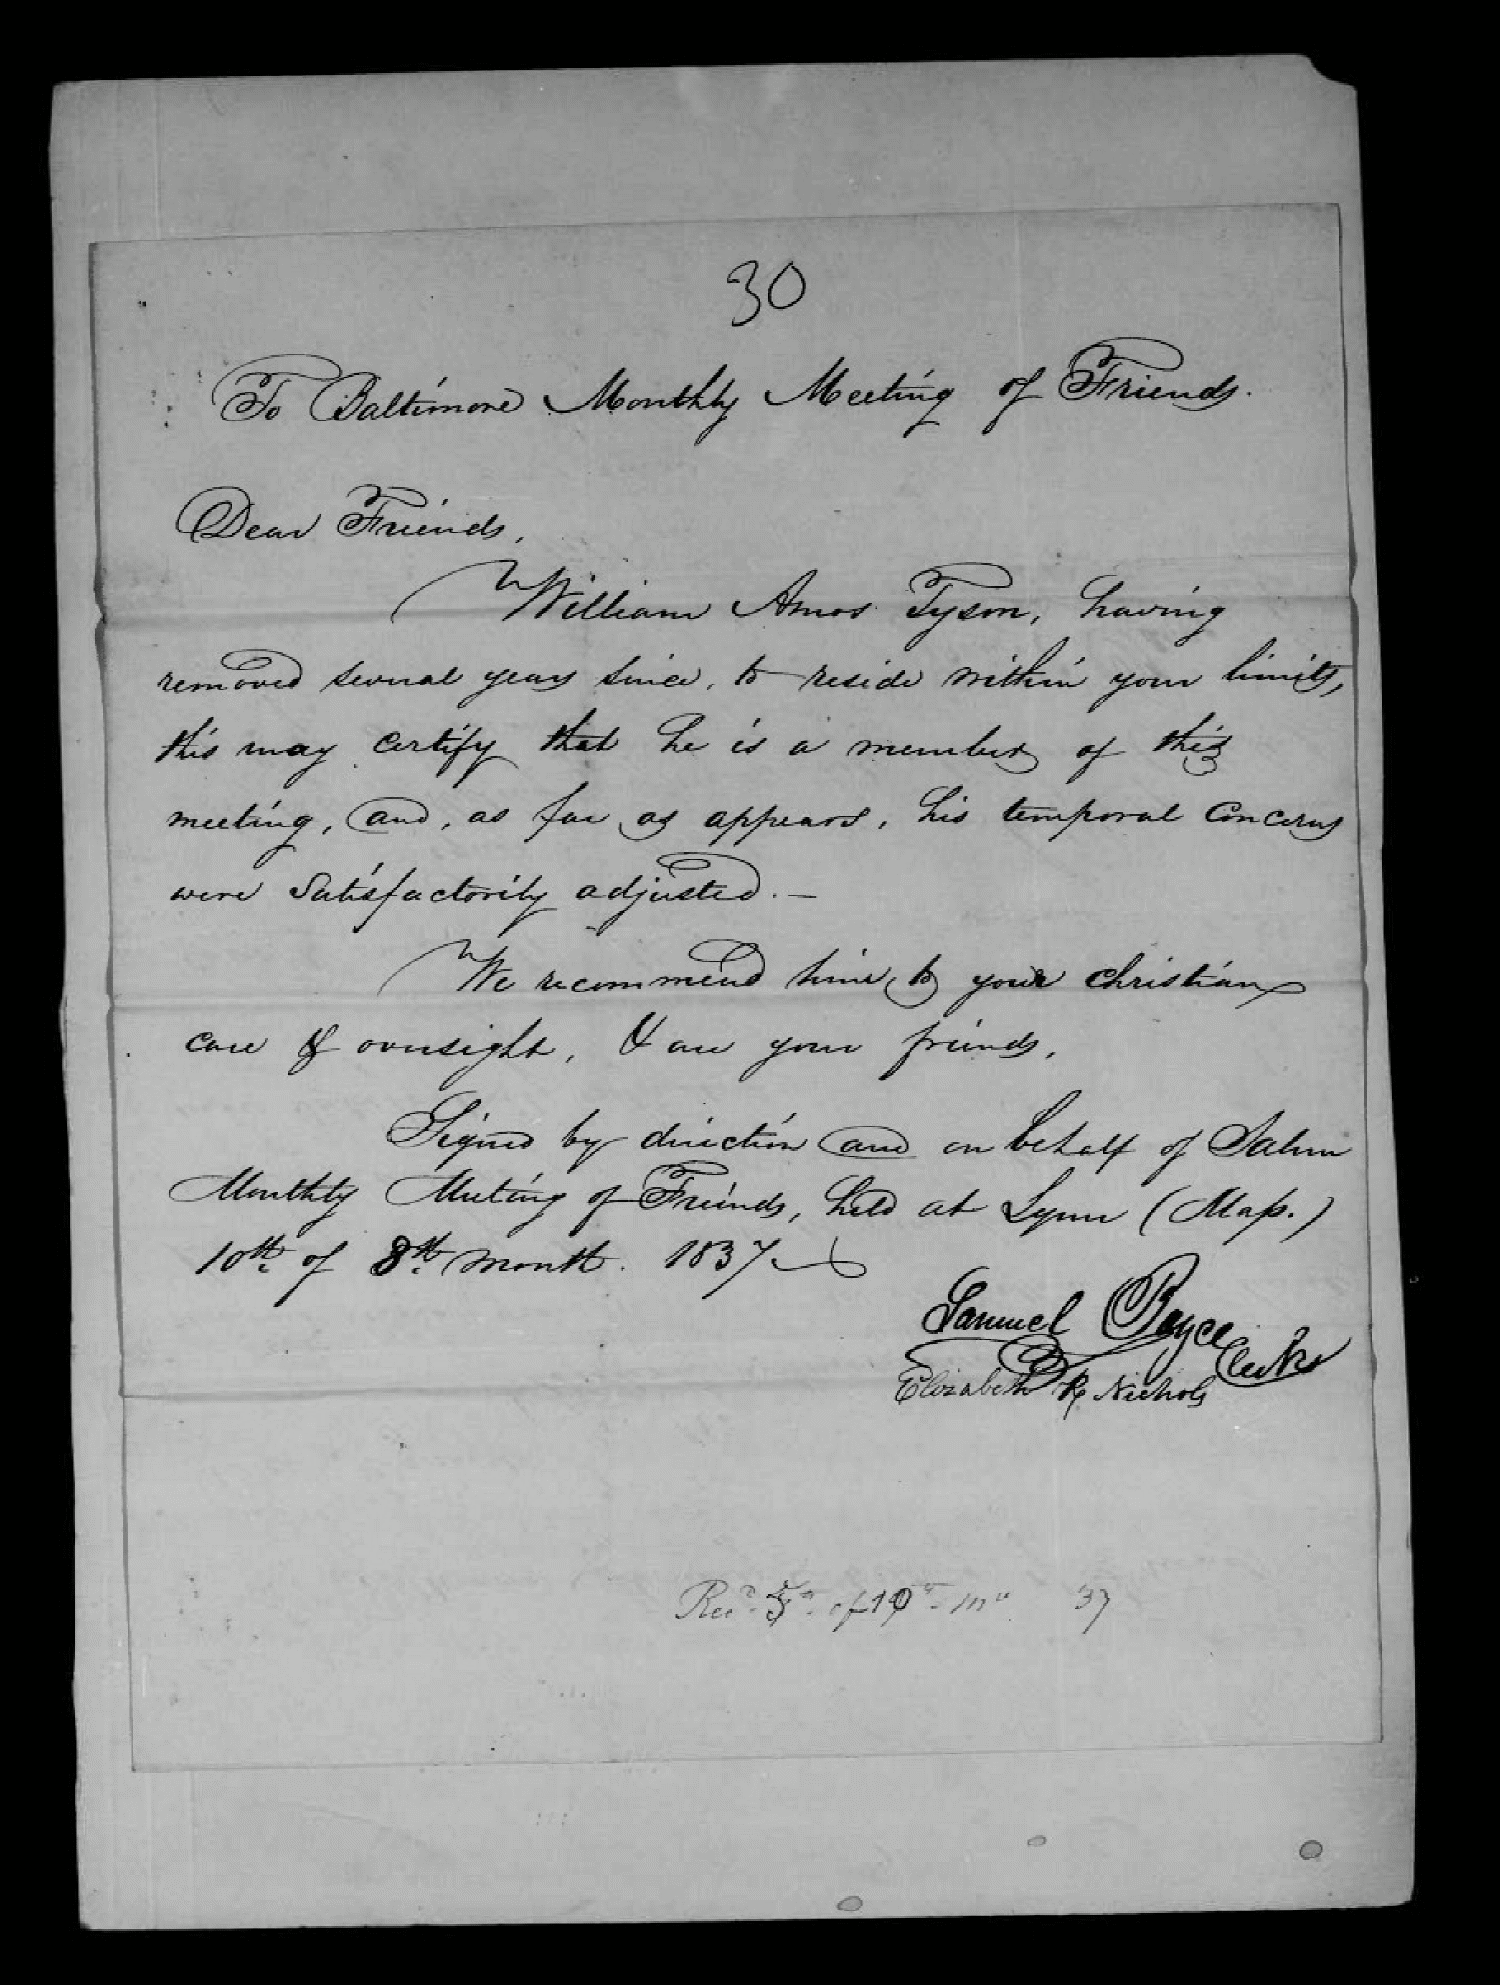 30
To Baltimore Monthly Meeting of Friends.
Dear Friends,
William Amos Tyson, having
removed several years since, to reside within your limits,
this may certify that he is a member of this
meeting, and, as far as appears, his temporal concerns
were satisfactorily adjusted. —
We recommend him to your christian
care & oversight, & are your friends.
Signed by direction and on behalf of Salem
Monthly Meeting of Friends, held at Lynn (Mass.)
10th of 8th month. 1837
Samuel Boyce
Clerks
Elizabeth R Nichols
Recd. 5th of 10th mo 37